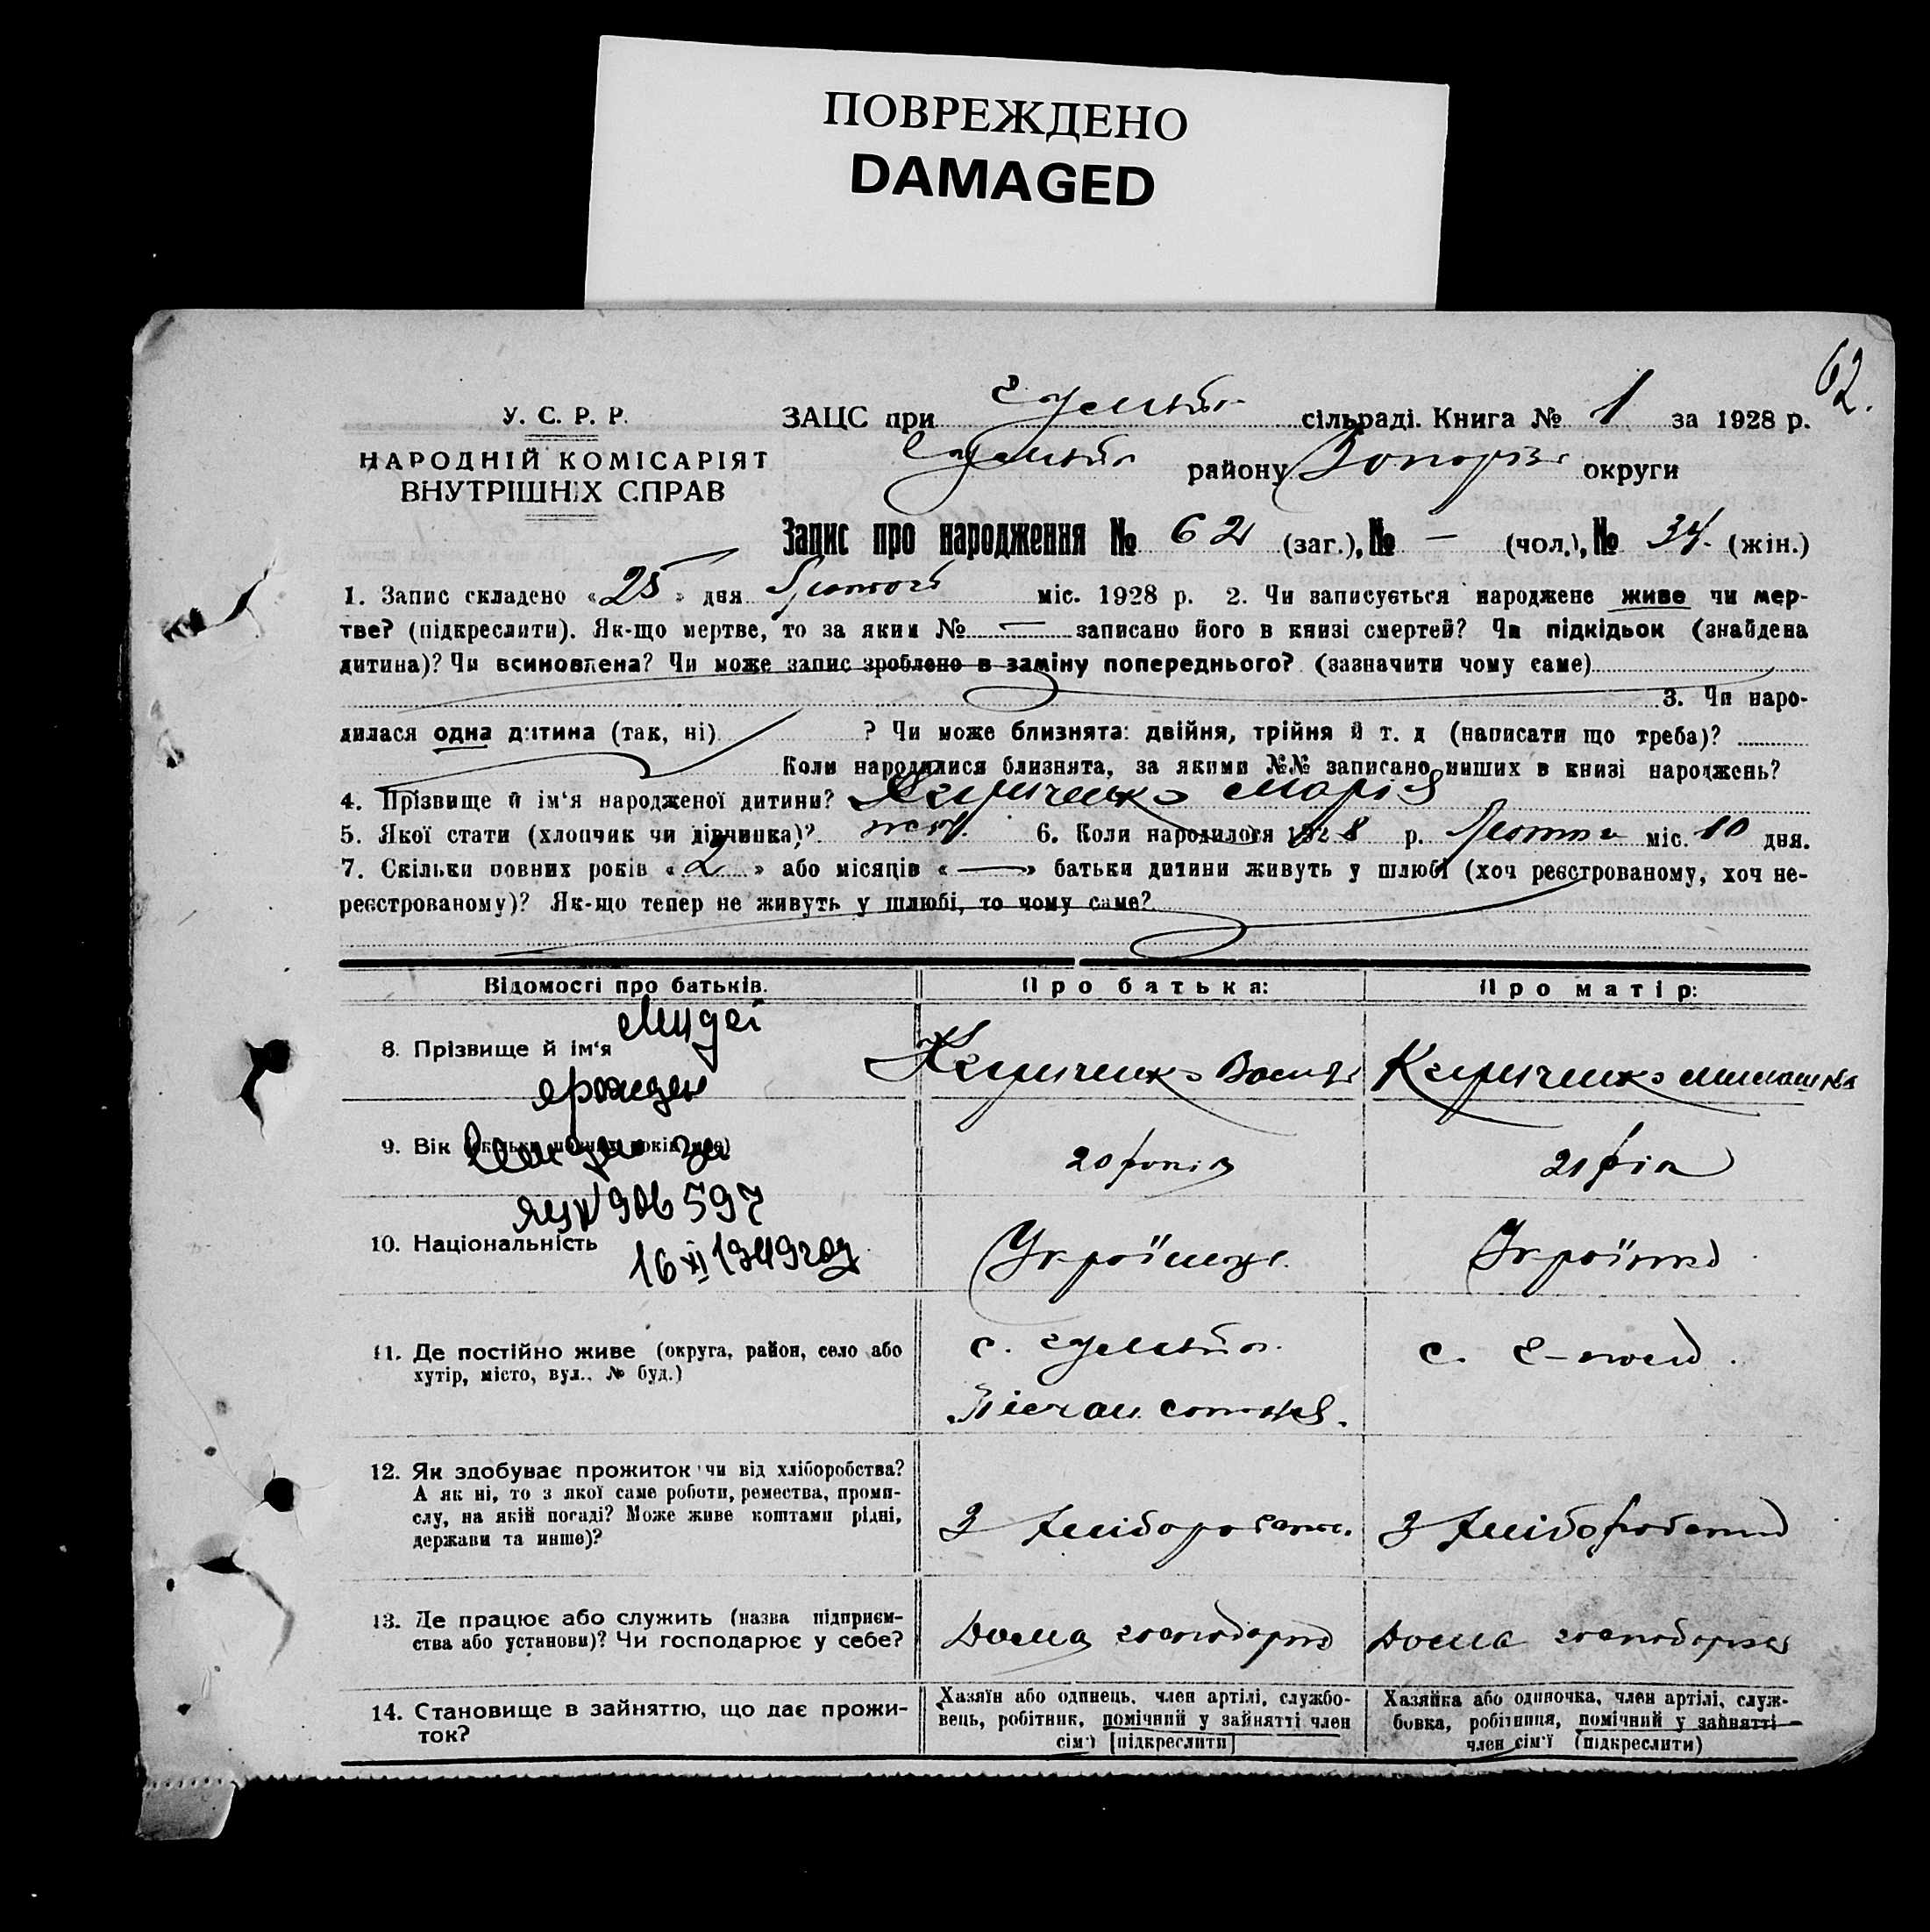 ПОВРЕЖДЕНО
DAMAGED
62.
У. С. Р. Р.
НАРОДНІЙ КОМІСАРІЯТ
ВНУТРІШНІХ СПРАВ
ЗАЦС при сільраді. Книга № 1 за 1928 р.
району округи
Запис про народження № 62 (заг.), № — (чол.), № 34. (жін.)
1. Запис складено «25» дня Лютого міс. 1928 р. 2. Чи записується народжене живе чи мер-
тве? (підкреслити). Як-що мертве, то за яким № — записано його в книзі смертей? Чи підкідьок (знайдена
дитина)? Чи всиновлена? Чи може запис зроблено в заміну попереднього? (зазначити чому саме)
3. Чи наро-
дилася одна дитина (так, ні) ? Чи може близнята: двійня, трійня й т. д (написати що треба)?
Коли народилися близнята, за якими №№ записано инших в книзі народжень?
4. Прізвище й ім'я народженої дитини? Кириченко Марія
5. Якої стати (хлопчик чи дівчинка)? жін. 6. Коли народилося 1928 р. Лютого міс. 10 дня.
7. Скільки повних років «2» або місяців «—» батьки дитини живуть у шлюбі (хоч реєстрованому, хоч не-
реєстрованому)? Як-що тепер не живуть у шлюбі, то чому саме?
Відомості про батьків. Про батька: Про матір:
8. Прізвище й ім'я Кириченко Василь Кириченко
9. Вік (скільки повних років має) 20 років 21 рік
906597
10. Національність Українець. Українка
16 XI 1949 год
11. Де постійно живе (округа, район, село або
хутір, місто, вул., № буд.)
12. Як здобуває прожиток чи від хліборобства?
А як ні, то з якої саме роботи, ремества, проми-
слу, на якій посаді? Може живе коштами рідні,
держави та инше)?
З хліборобства. З хліборобства
13. Де працює або служить (назва підприєм-
ства або установи)? Чи господарює у себе?
Дома господарює Дома господарює
14. Становище в зайняттю, що дає прожи-
ток?
Хазяїн або одинець, член артілі, службо-
вець, робітник, помічний у зайнятті член
сім'ї [підкреслити]
Хазяйка або одиночка, член артілі, служ-
бовка, робітниця, помічний у зайнятті
член сім'ї (підкреслити)